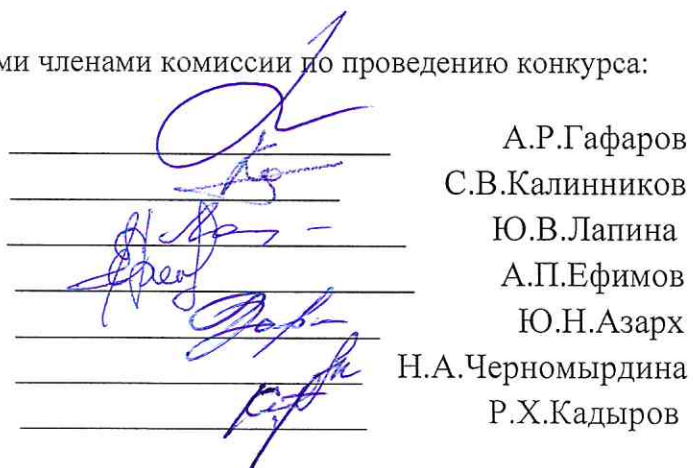 ми членами комиссии по проведению конкурса:
А.Р.Гафаров
С.В.Калинников
Ю.В.Лапина
А.П.Ефимов
Ю.Н.Азарх
Н.А.Черномырдина
Р.Х.Кадыров